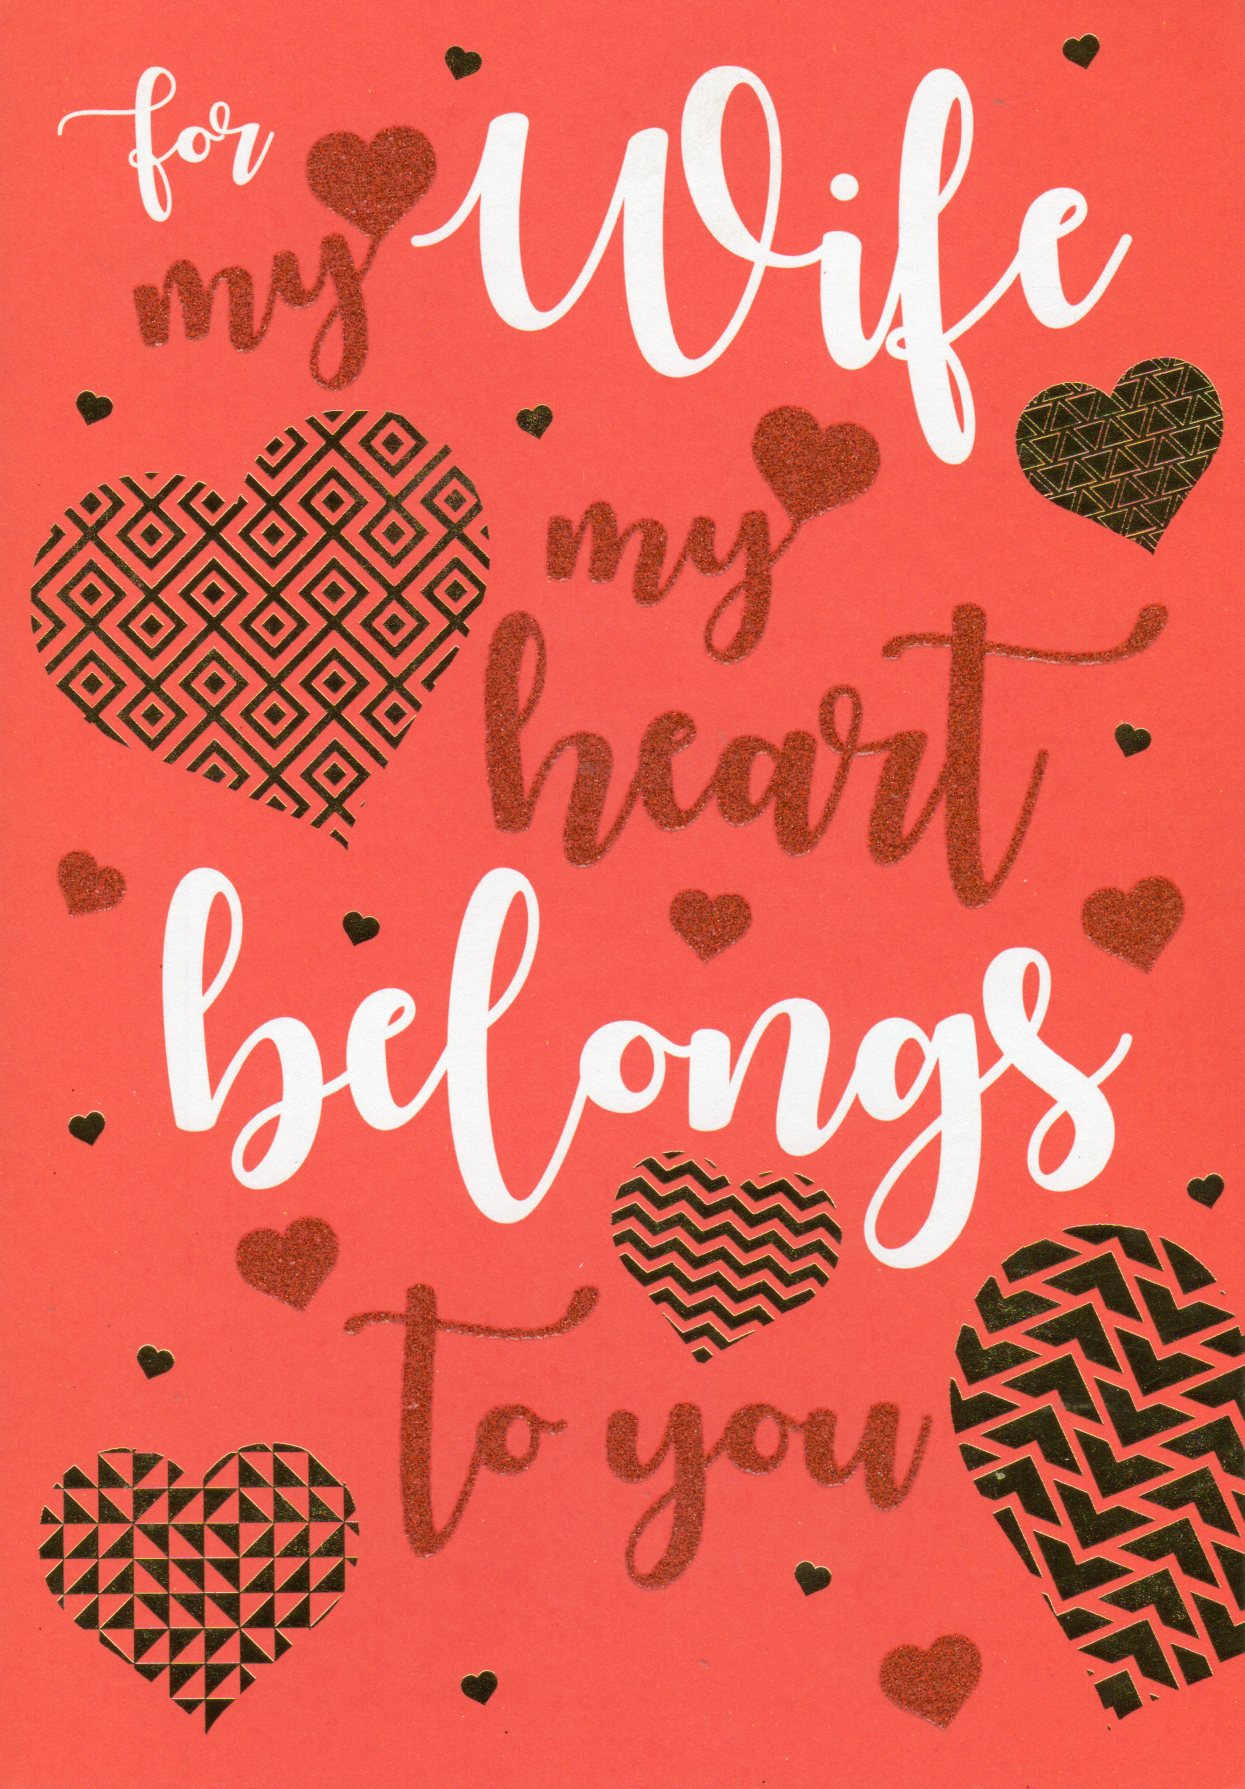 for my Wife
my
heart
belongs
to you